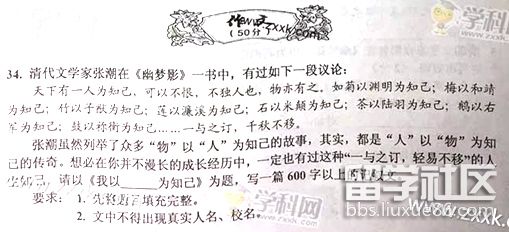 作文
(50分)
学科网
zxxk.com
34. 清代文学家张潮在《幽梦影》一书中，有过如下一段议论：
天下有一人为知己，可以不恨，不独人也，物亦有之。如菊以渊明为知己；梅以和靖
为知己；竹以子猷为知己；莲以濂溪为知己；石以米颠为知己；茶以陆羽为知己；鹅以右
军为知己；鼓以祢衡为知己……一与之订，千秋不移。
张潮虽然列举了众多“物”以“人”为知己的故事，其实，都是“人”以“物”为知
己的传奇。想必在你并不漫长的成长经历中，一定也有过这种“一与之订，轻易不移”的人
生知己，请以《我以____为知己》为题，写一篇 600 字以上的
要求：1. 先将题目填充完整。
2. 文中不得出现真实人名、校名。
学科网
留学社区
www.zxxk.com